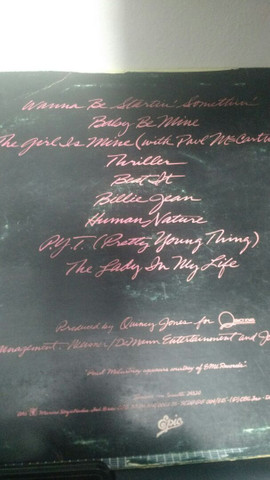 Wanna Be Startin' Somethin'
Baby Be Mine
The Girl Is Mine (with Paul McCartn
Thriller
Beat It
Billie Jean
Human Nature
P.Y.T. (Pretty Young Thing)
The Lady In My Life
Produced by Quincy Jones for
Management: Weisner/DeMann Entertainment and J
"Paul McCartney appears courtesy of
Epic